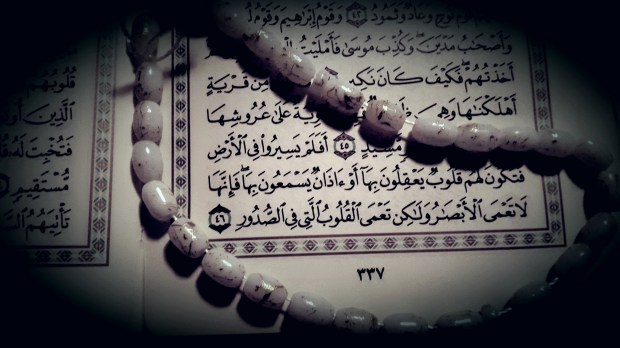 نُوحٍ وَعَادٌ وَثَمُودُ ٤٢ وَقَوْمُ إِبْرَاهِيمَ وَقَوْمُ
وَأَصْحَابُ مَدْيَنَ وَكُذِّبَ مُوسَىٰ فَأَمْلَيْتُ
أَخَذْتُهُمْ فَكَيْفَ كَانَ مِّن قَرْيَةٍ
أَهْلَكْنَاهَا وَهِيَ عَلَىٰ عُرُوشِهَا
٤٥ أَفَلَمْ يَسِيرُوا فِي الْأَرْضِ
فَتَكُونَ لَهُمْ قُلُوبٌ يَعْقِلُونَ بِهَا أَوْ آذَانٌ يَسْمَعُونَ بِهَا فَإِنَّهَا
لَا تَعْمَى الْأَبْصَارُ وَلَٰكِن تَعْمَى الْقُلُوبُ الَّتِي فِي الصُّدُورِ ٤٦
٣٣٧
قُلُوبُهُمْ
الَّذِينَ
فَتُخْبِتَ لَهُ
مُّسْتَقِيمٍ
تَأْتِيَهُمُ